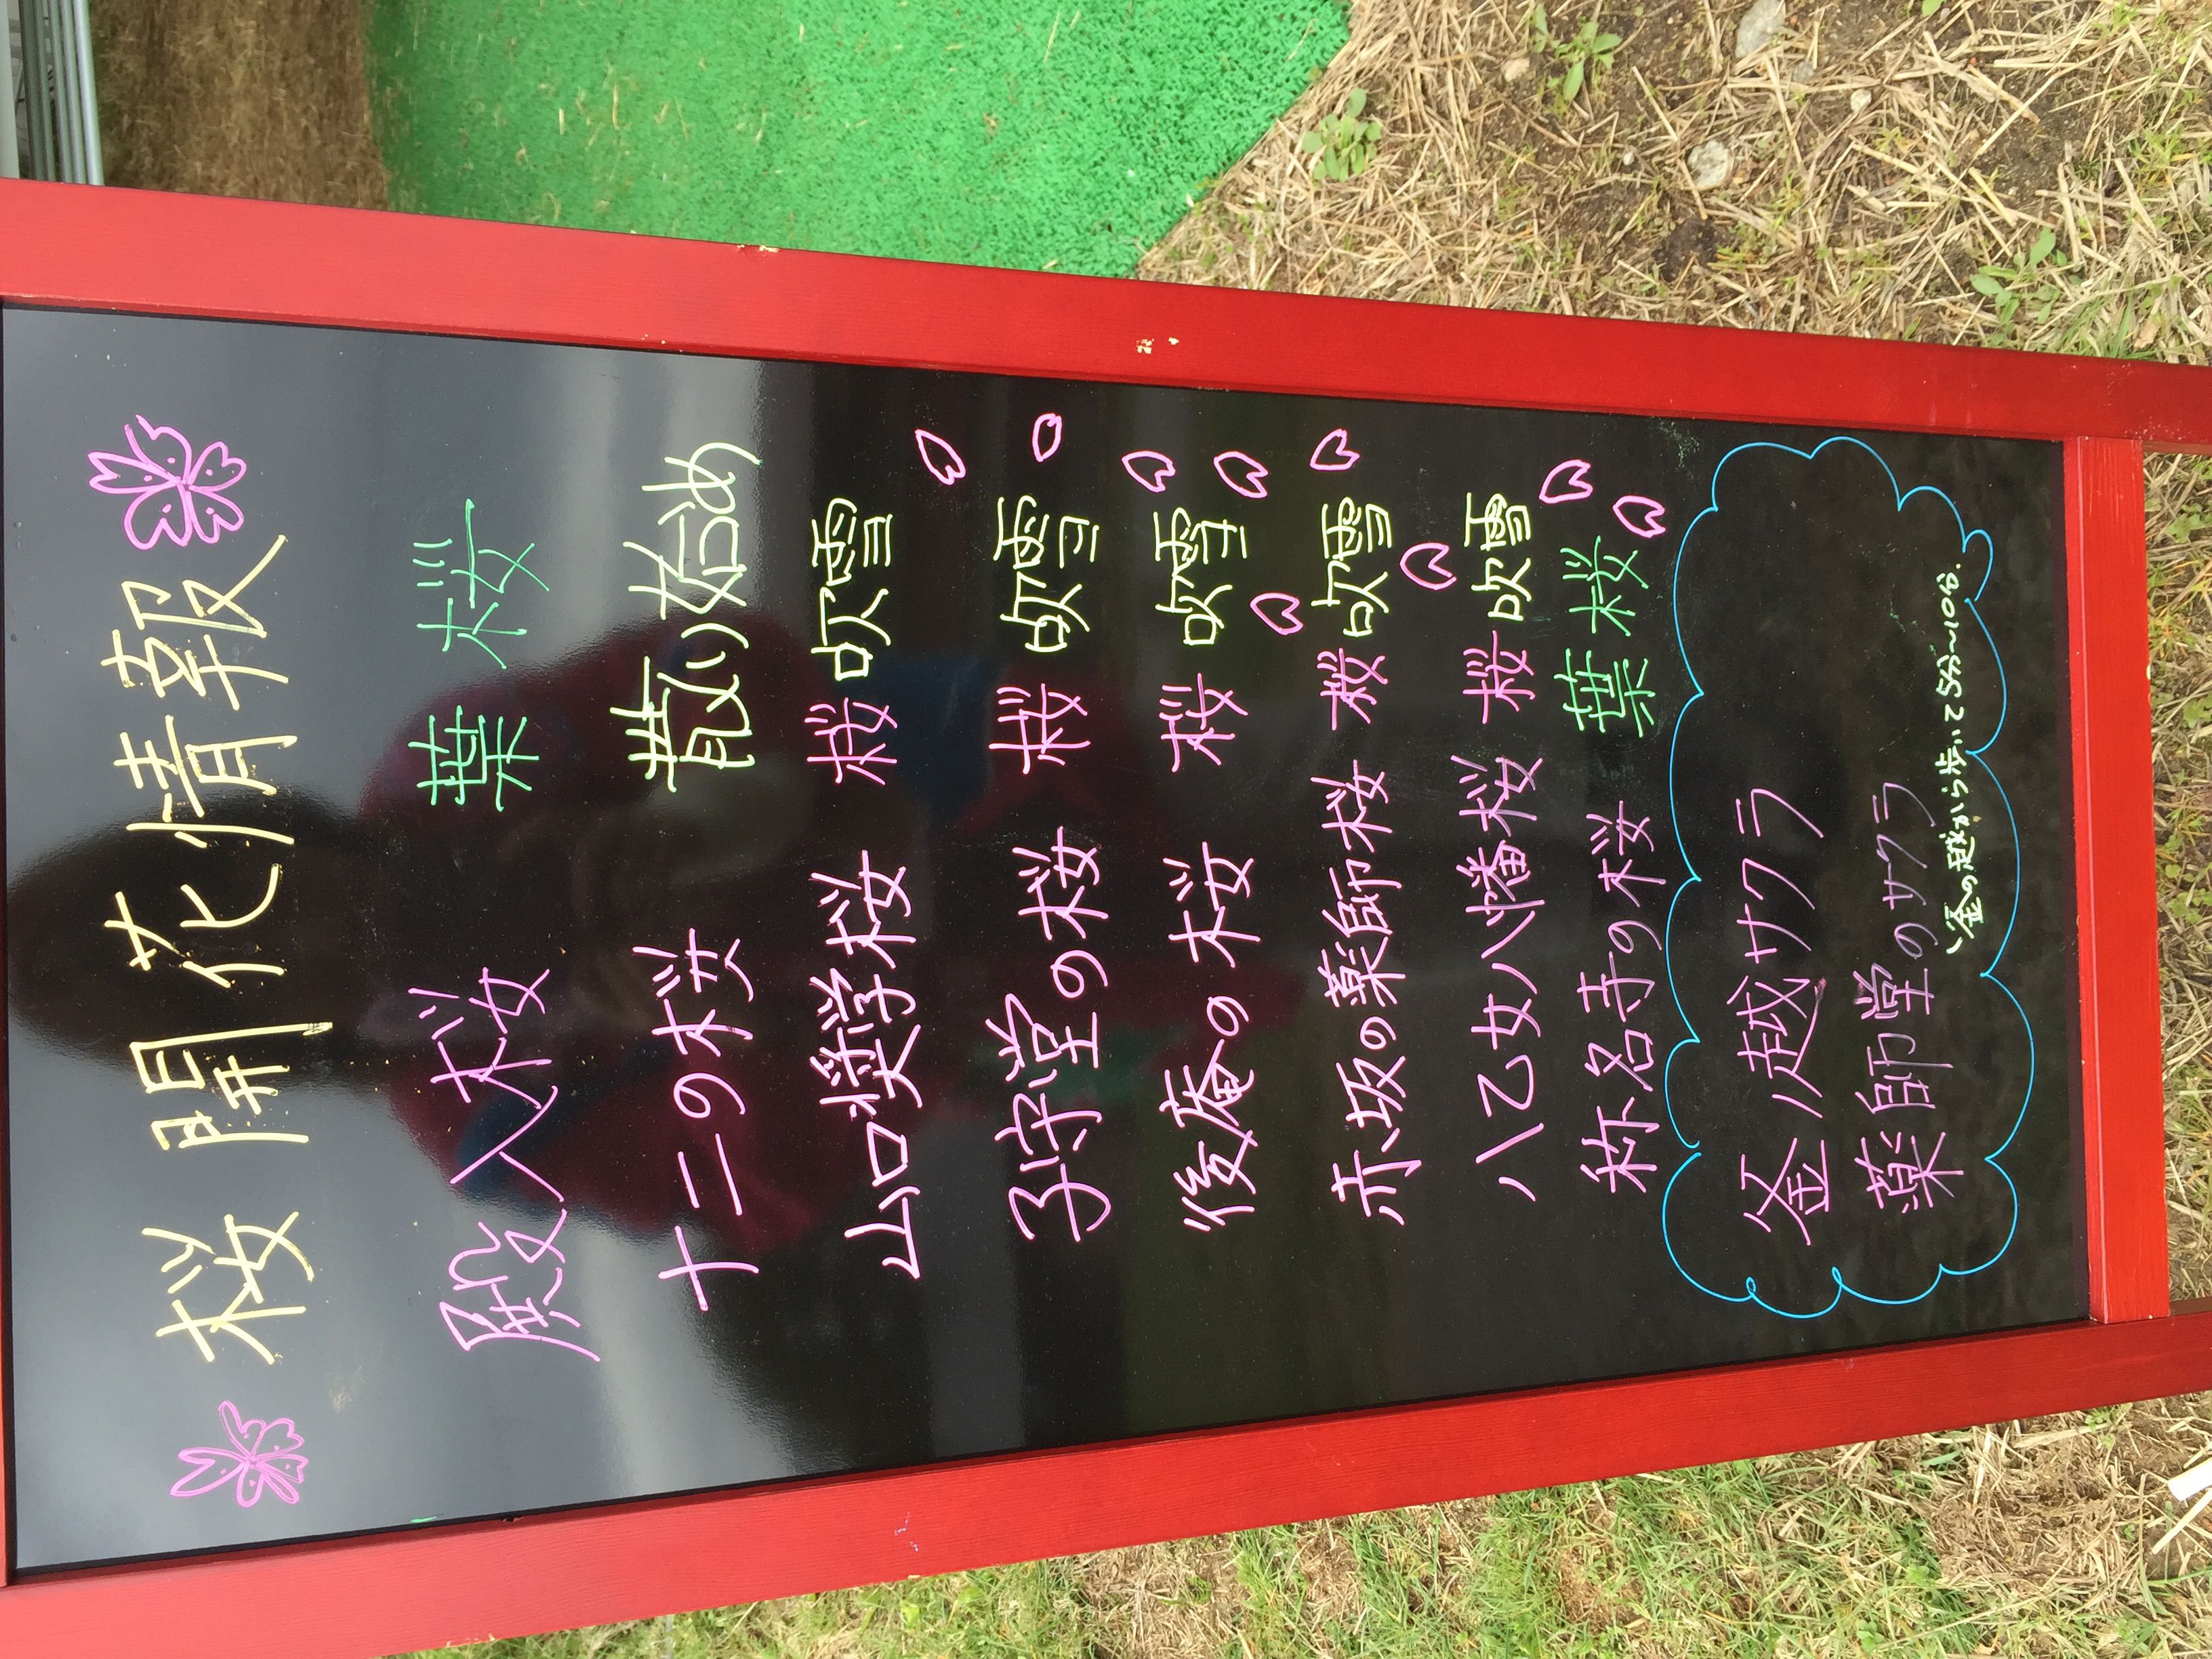 桜開花情報
殿入桜 葉桜
十二の桜 散り始め
山口奨学桜 桜吹雪
子守堂の桜 桜吹雪
後庵の桜 桜吹雪
赤坂の薬師桜 桜吹雪
八乙女八幡桜 桜吹雪
称名寺の桜 葉桜
釜ノ越サクラ
薬師堂のサクラ
釜の越から歩いて5分〜10分.